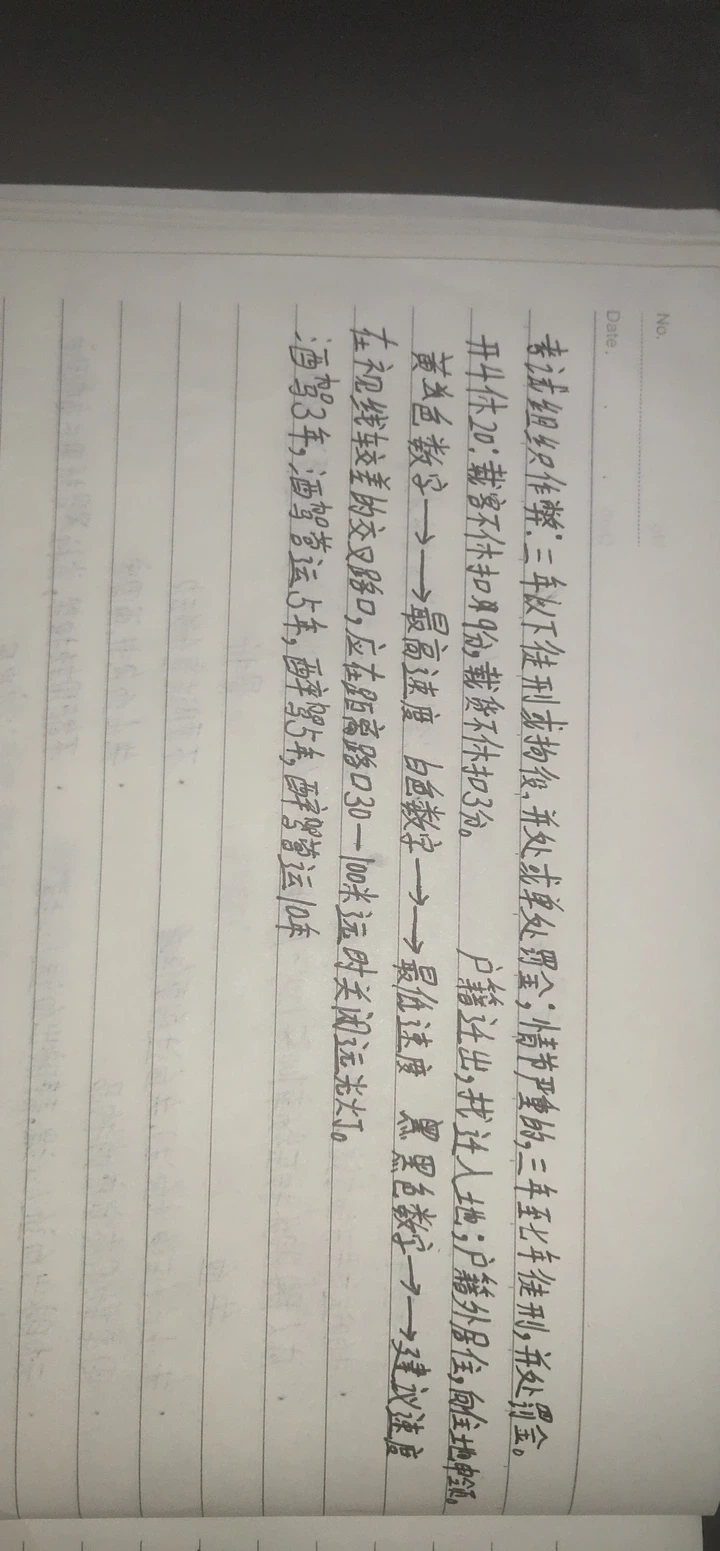 No.
Date.
考试组织作弊:三年以下徒刑或拘役,并处或单处罚金;情节严重的,三年至七年徒刑,并处罚金。
开4休20:载客不休扣9分,载货不休扣3分。 户籍迁出,找迁入地;户籍外居住,向住地申领。
黄色数字→→最高速度 白色数字→→最低速度 黑色数字→→建议速度
在视线较差的交叉路口,应在距离路口30—100米远时关闭远光灯。
酒驾3年,酒驾营运5年,醉驾5年,醉驾营运10年